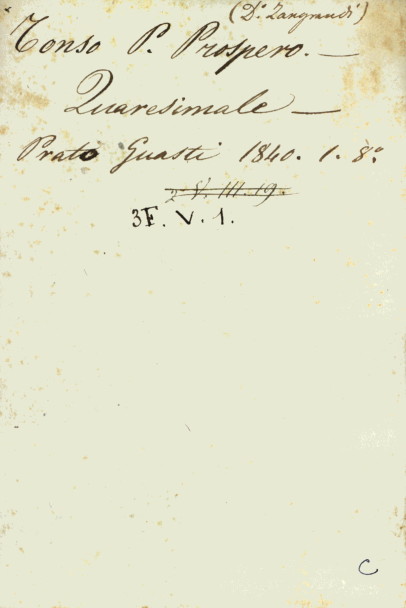 (D. Zangrandi)
Tonso P. Prospero. —
Quaresimale —
Prato Guasti 1840. 1. 8º
2. V. III. 19.
3F. V. 1.
C